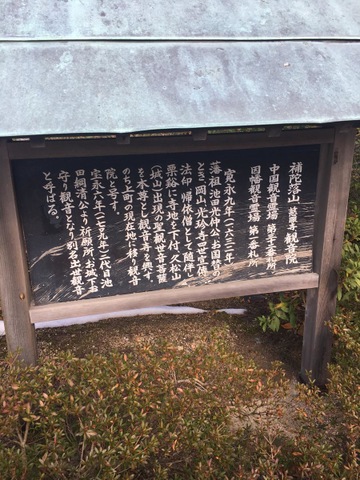 補陀落山 慈眼寺 観音院
中国観音霊場 第三十番札所
因幡観音霊場 第一番札所
寛永九年(一六三二年)
藩祖池田光仲公、お国替えの
とき、岡山光珍寺四世宣伝
法印、帰依僧として随伴し
栗谷に寺地を下付、久松山
(城山)出現の聖観世音菩薩
を本尊とし観音寺を興す。
のち上町の現在地に移り、観音
院と号す。
宝永六年(一七〇九年)二代目池
田綱清公より祈願所、お城下お
守り観音となり別名出世観音
と呼ばる。